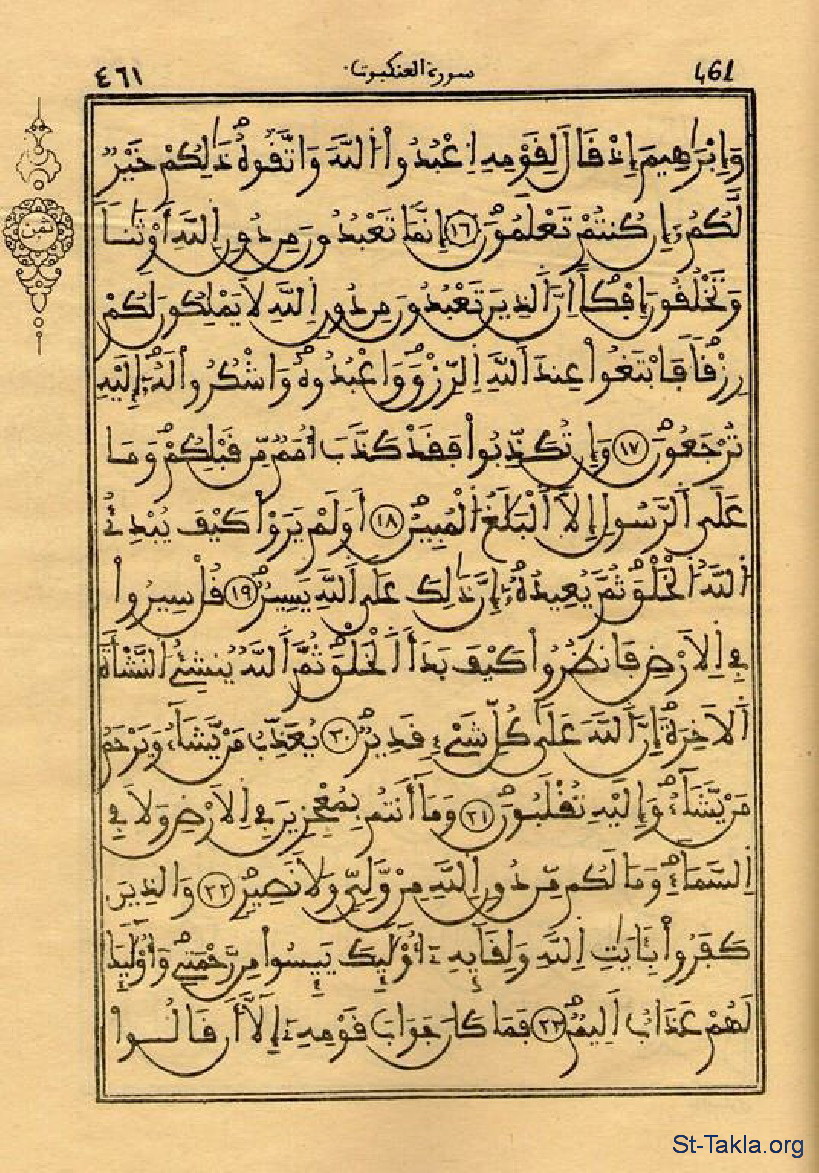 ٤٦١ سورة العنكبوت 461
وَإِبْرَٰهِيمَ إِذْ قَالَ لِقَوْمِهِ اِعْبُدُوا۟ اللَّهَ وَاتَّقُوهُ ذَٰلِكُمْ خَيْرٌ
لَّكُمُۥ إِن كُنتُمْ تَعْلَمُونَ ١٦ إِنَّمَا تَعْبُدُونَ مِن دُونِ اِللَّهِ أَوْثَٰناً
وَتَخْلُقُونَ إِفْكاً اِنَّ اَلذِينَ تَعْبُدُونَ مِن دُونِ اِللَّهِ لَا يَمْلِكُونَ لَكُمْ
رِزْقاً فَابْتَغُوا۟ عِندَ اَللَّهِ اِلرِّزْقَ وَاعْبُدُوهُ وَاشْكُرُوا۟ لَهُۥ إِلَيْهِ
تُرْجَعُونَ ١٧ وَإِن تُكَذِّبُوا۟ فَقَدْ كَذَّبَ أُمَمٌ مِّن قَبْلِكُمْ وَمَا
عَلَى اَلرَّسُولِ إِلَّا اَلْبَلَٰغُ اُلْمُبِينُ ١٨ أَوَلَمْ يَرَوْا۟ كَيْفَ يُبْدِئُ
اُللَّهُ اُلْخَلْقَ ثُمَّ يُعِيدُهُۥ إِنَّ ذَٰلِكَ عَلَى اَللَّهِ يَسِيرٌ ١٩ قُلْ سِيرُوا۟
فِى اِلَارْضِ فَانظُرُوا۟ كَيْفَ بَدَأَ اَلْخَلْقَ ثُمَّ اَللَّهُ يُنشِئُ اُلنَّشْأَةَ
اَلَاخِرَةَ إِنَّ اَللَّهَ عَلَىٰ كُلِّ شَىْءٍ قَدِيرٌ ٢٠ يُعَذِّبُ مَنْ يَّشَآءُ وَيَرْحَمُ
مَنْ يَّشَآءُ وَإِلَيْهِ تُقْلَبُونَ ٢١ وَمَآ أَنتُم بِمُعْجِزِينَ فِى اِلَارْضِ وَلَا فِى
اِلسَّمَآءِ وَمَا لَكُم مِّن دُونِ اِللَّهِ مِنْ وَّلِىٍّ وَلَا نَصِيرٍ ٢٢ وَالذِينَ
كَفَرُوا۟ بِـَٔايَٰتِ اِللَّهِ وَلِقَآئِهِۦ أُو۟لَٰٓئِكَ يَئِسُوا۟ مِن رَّحْمَتِى وَأُو۟لَٰٓئِكَ
لَهُمْ عَذَابٌ اَلِيمٌ ٢٣ فَمَا كَانَ جَوَابَ قَوْمِهِۦ إِلَّا أَن قَالُوا۟
ثمن
St-Takla.org